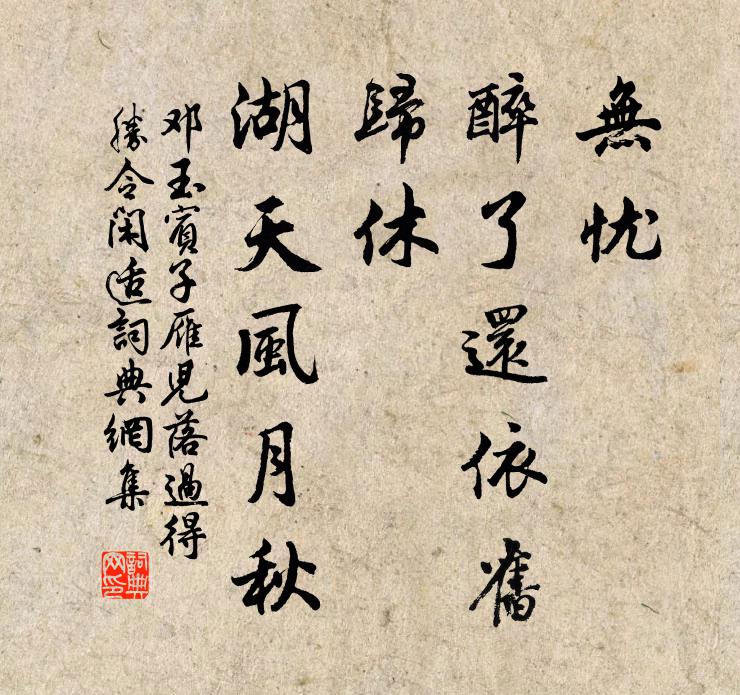 無忧
醉了還依舊
歸休
湖天風月秋
邓玉賓子雁児落過得
勝令閑适詞典網集
詞典
网印